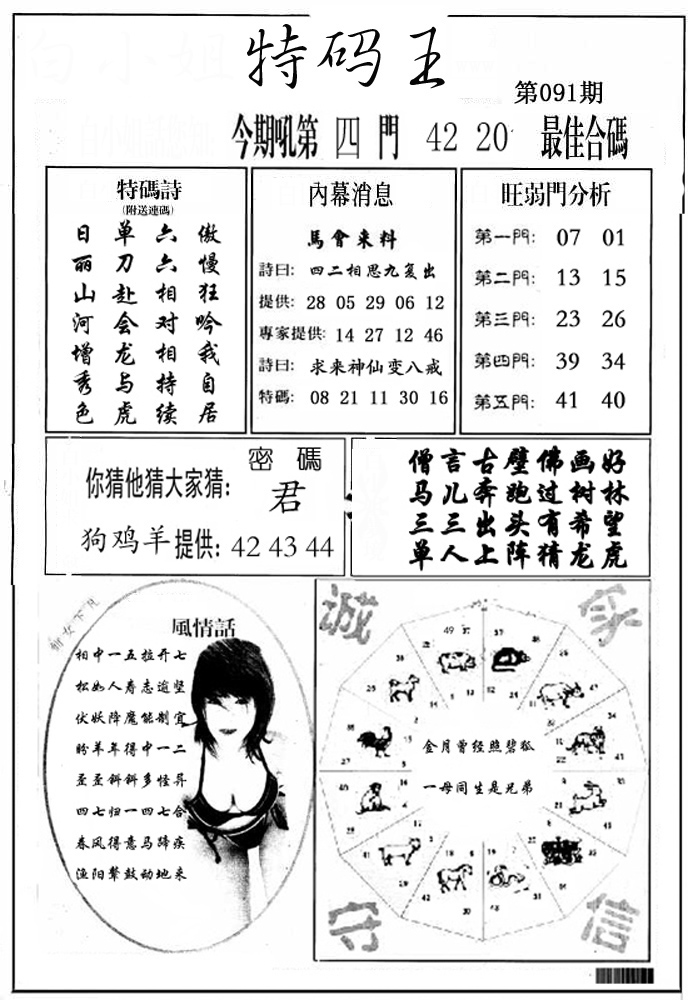 特码王
第091期
今期吼第 四 門 42 20 最佳合碼
特碼詩
(附送連碼)
日 单 六 傲
丽 刀 六 慢
山 赴 相 狂
河 会 对 吟
增 龙 相 我
秀 与 持 自
色 虎 续 居
內幕消息
馬會来料
詩曰: 四二相思九复出
提供: 28 05 29 06 12
專家提供: 14 27 12 46
詩曰: 求来神仙变八戒
特碼: 08 21 11 30 16
旺弱門分析
第一門: 07 01
第二門: 13 15
第三門: 23 26
第四門: 39 34
第五門: 41 40
密碼
你猜他猜大家猜: 君
狗鸡羊提供: 42 43 44
僧言古璧佛画好
马儿奔跑过树林
三三出头有希望
单人上阵猜龙虎
風情話
相中一五拉开七
松如人寿志逾坚
伏妖降魔能制宜
盼羊年得中一二
歪歪斜斜多怪异
四七归一四七合
春风得意马蹄疾
渔阳鼙鼓动地来
诚 家
金月曾经照碧狐
一母同生是兄弟
守 信